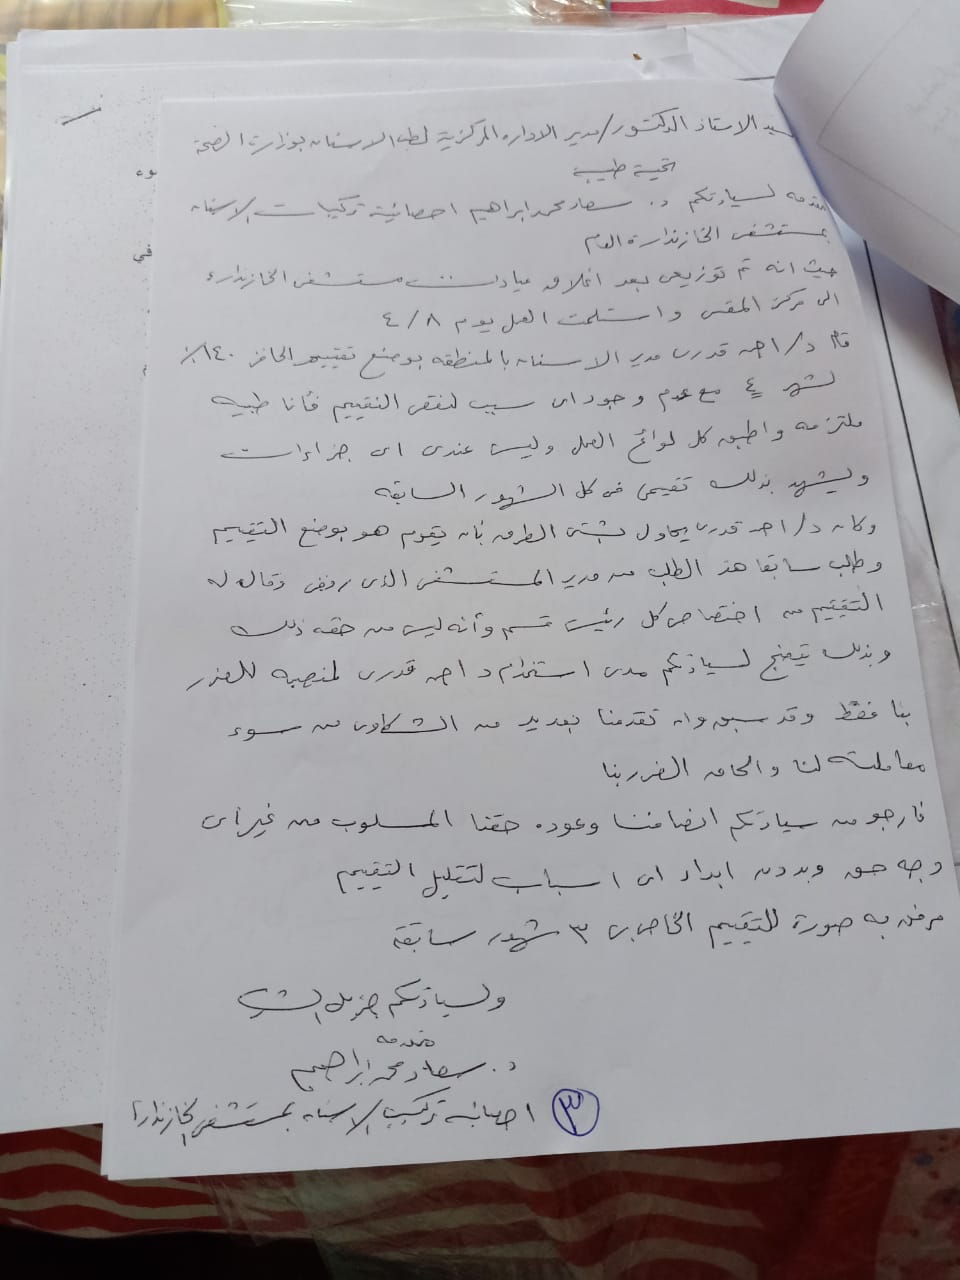 السيد الاستاذ الدكتور/مدير الاداره المركزية لطب الاسنان بوزارة الصحة
تحية طيبة
مقدمه لسيادتكم د. سعاد محمد ابراهيم اخصائية تركيبات الاسنان
بمستشفى الخازندارة العام
حيث انه تم توزيعى بعد اغلاق عيادات مستشفى الخازندارة
الى مركز المقسى واستلمت العمل يوم ٤/٨
قام د/احمد قدرى مدير الاسنان بالمنطقه بوضع تقييم الحافز ١٤٠٪
لشهر ٤ مع عدم وجود اى سبب لنقص التقييم فأنا طبيبه
ملتزمه واطبق كل لوائح العمل وليس عندى اى جزاءات
ويشهد بذلك تقيمى فى كل الشهور السابقه
وكان د/احمد قدرى يحاول بشتى الطرق بأن يقوم هو بوضع التقييم
وطلب سابقا هذا الطلب من مدير المستشفى الذى رفض وقال له
التقييم من اختصاص كل رئيس قسم وأنه ليس من حقه ذلك
وبذلك يتضح لسيادتكم مدى استخدام د احمد قدرى لمنصبه للضرر
بنا فقط وقد سبق وان تقدمنا بعديد من الشكاوى من سوء
معاملته لنا والحاق الضرر بنا
فارجو من سيادتكم انصافنا وعوده حقنا المسلوب من غير اى
وجه حق وبدون ابداء اى اسباب لتقليل التقييم
مرفق به صورة للتقييم الخاص بى ٣ شهور سابقة
ولسيادتكم جزيل الشكر
مقدمه
د. سعاد محمد ابراهيم
اخصائية تركيبات الاسنان بمستشفى الخازندارة
٣